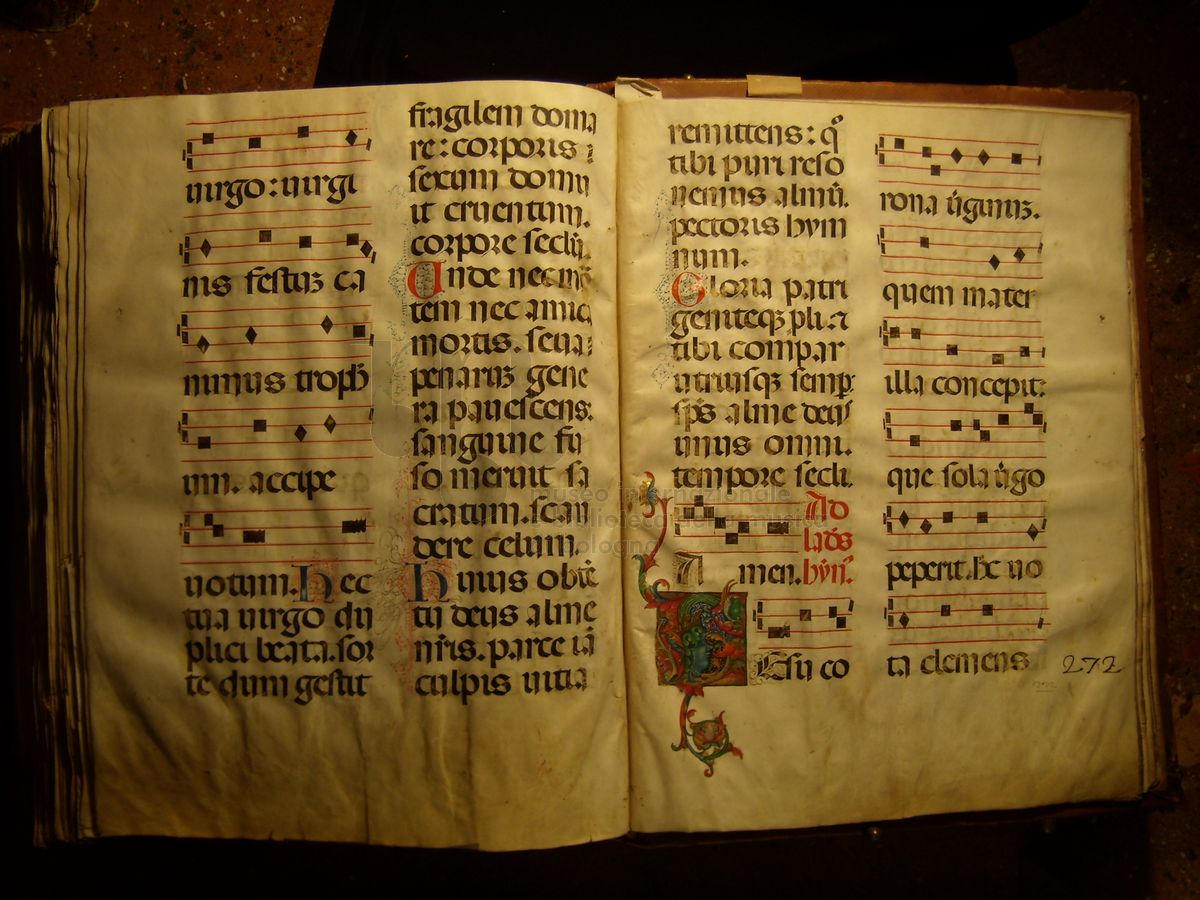 uirgo: uirgi
nis festuʒ ca
nimus troph
um. accipe
uotum. Hec
tua uirgo du
plici beata. sor
te dum gestit
fragilem doma
re: corporis
sexum domu
it cruentum.
corpore seclū
Vnde nec mor
tem nec amic
mortis. seua
penaruʒ gene
ra pauescens:
sanguine fu
so meruit sa
cratum. scan
dere celum.
Huius obtē
tu deus alme
nr̄is. parce iā
culpis uitia
remittens: q̄
tibi puri reso
nemus almū.
pectoris hym
num.
Gloria patri
geniteqʒ pli.
tibi compar
utriusqʒ semp:
sp̄s alme deus
unus omni.
tempore secli.
Ad
lauds
Amen. hyn.
IEsu co
rona ūginuʒ.
quem mater
illa concepit:
que sola ūgo
peperit. hc uo
ta clemens
272
museo internazionale
e biblioteca della musica
bologna